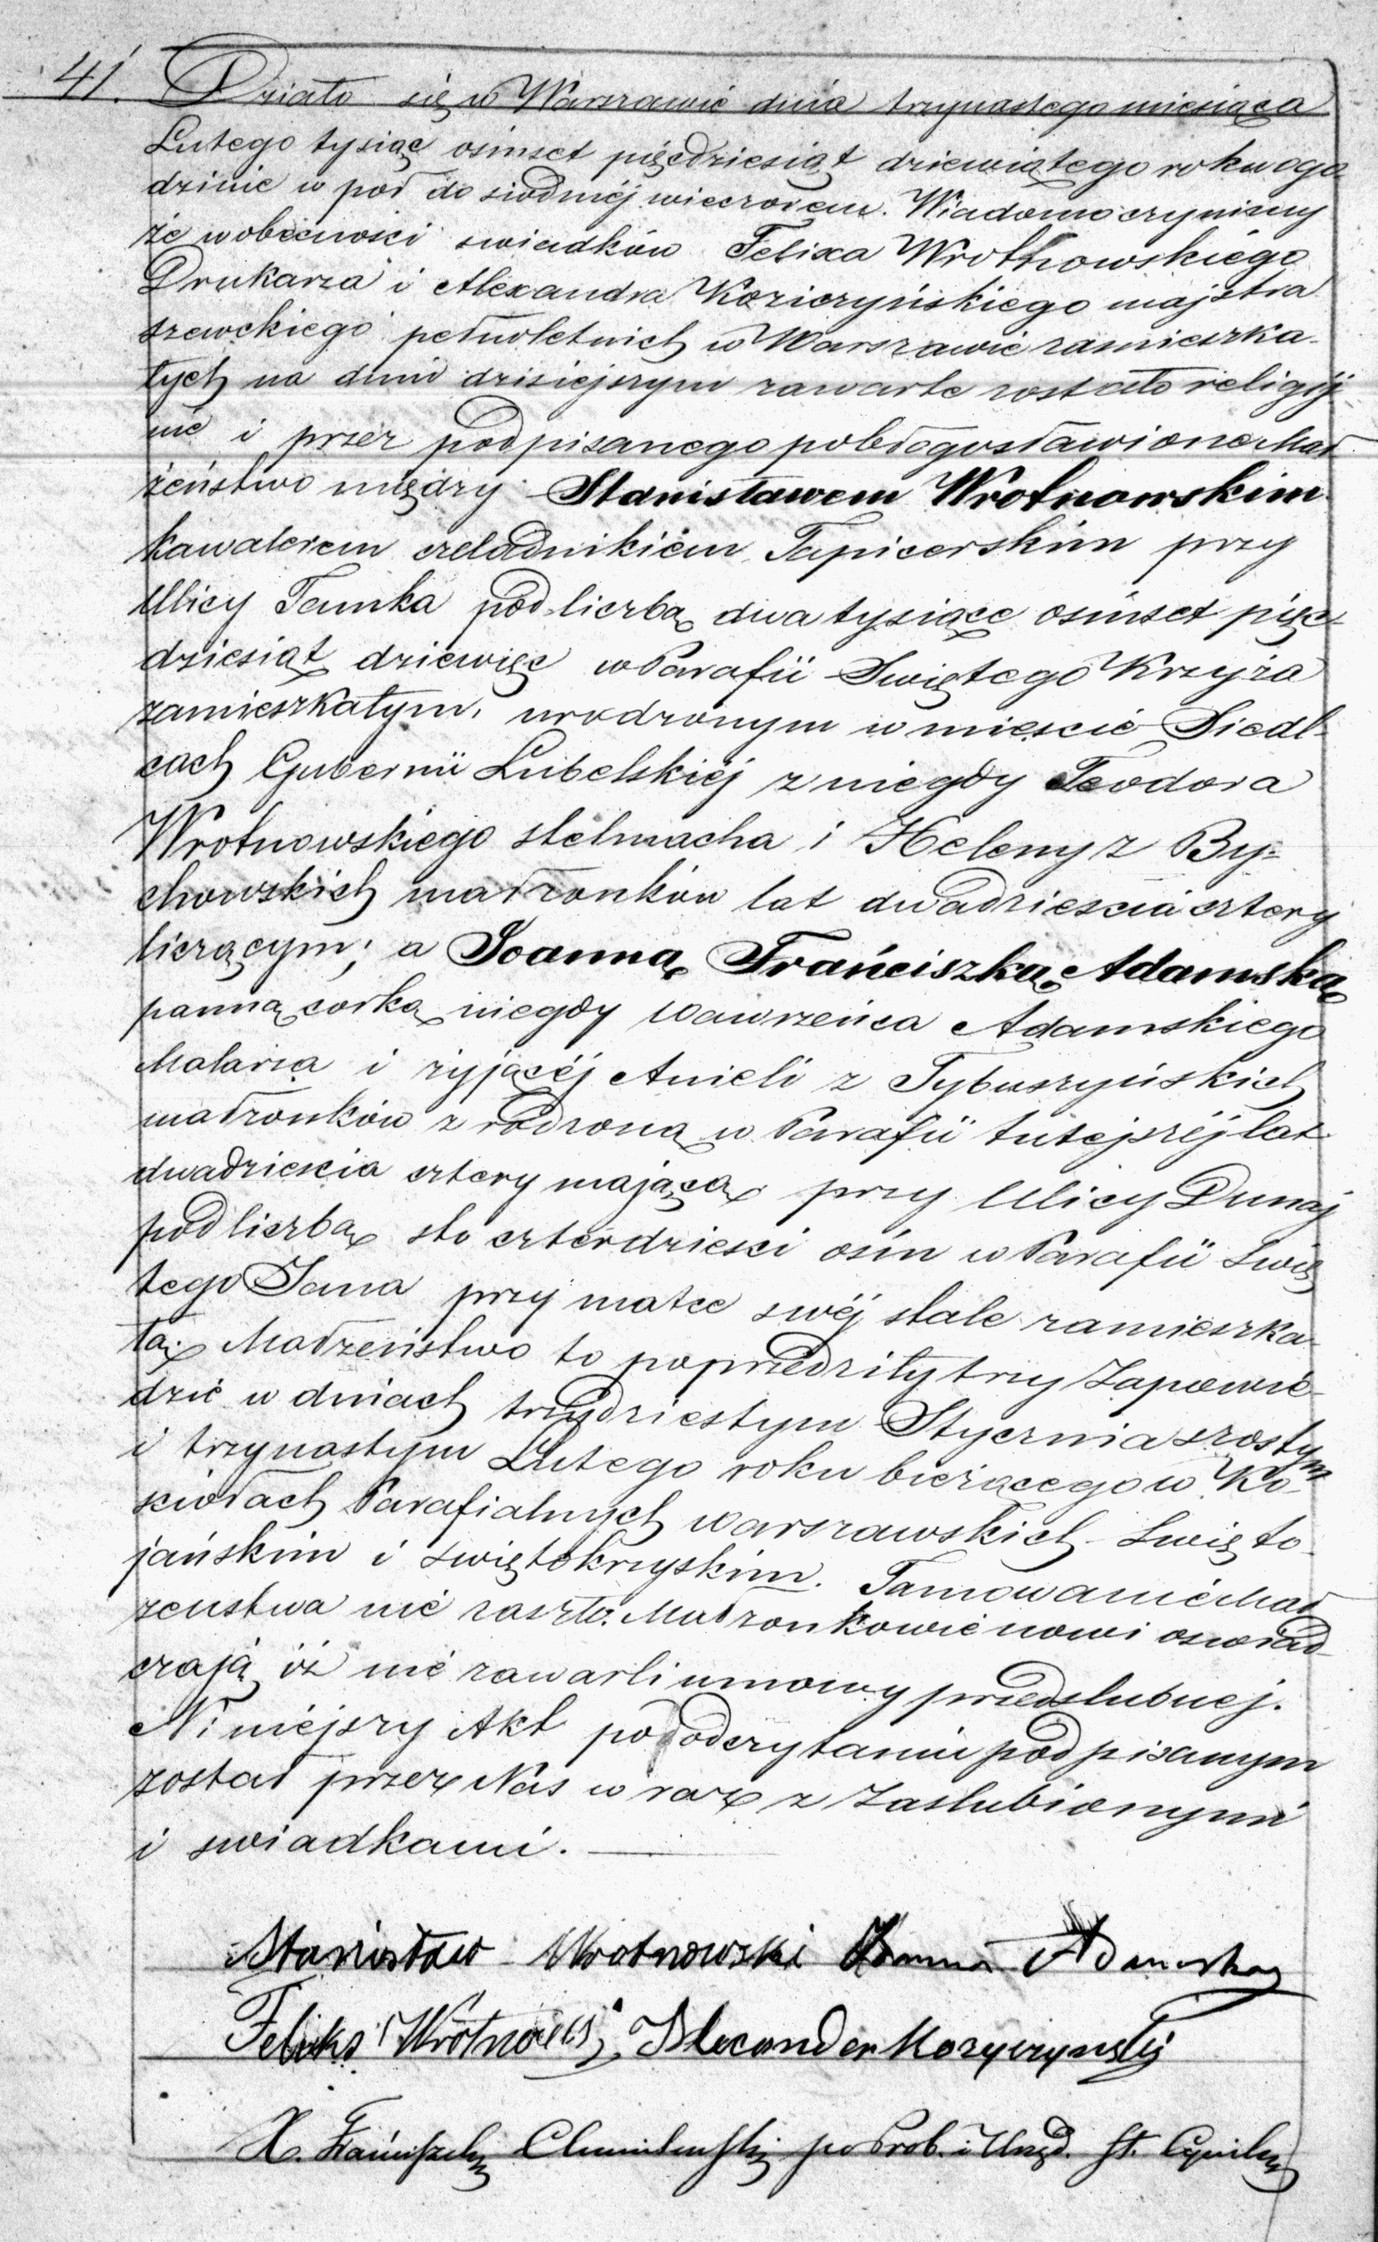 41. Działo się w Warszawie dnia trzynastego miesiąca
Lutego tysiąc ośmset pięćdziesiąt dziewiątego roku ogo-
dzinie w pół do siódméj wieczorem. Wiadomo czynimy
że wobecności swiadków Felixa Wrotnowskiego
Drukarza i Alexandra Koziczyńskiego majstra
szewckiego pełnoletnich w Warszawie zamieszka-
łych na dniu dzisiejszym zawarte zostało religij
nie i przez podpisanego pobłogosławione Mał
żeństwo między Stanisławem Wrotnowskim
kawalerem czeladnikiem Tapicerskim przy
Ulicy Tamka pod liczbą dwa tysiące ośmset pięć-
dziesiąt dziewięć w Parafii Swiętego Krzyża
zamieszkałym, urodzonym w mieście Siedl-
cach Gubernii Lubelskiéj z niegdy Teodora
Wrotnowskiego stelmacha i Heleny z By-
chowskich małżonków lat dwadzieścia cztery
liczącym; a Joanną Franciszką Adamską
panną córką niegdy Wawrzeńca Adamskiego
Malarza i żyjącéj Anieli z Tybuszyńskich
małżonków zrodzoną w Parafii tutejszéj lat
dwadzieścia cztery mającą przy Ulicy Dunaj
pod liczbą sto czterdzieści ośm w Parafii Swię
tego Jana przy matce swéj stale zamieszka-
łą. Małżeństwo to poprzedziły trzy Zapowie-
dzie w dniach trzydziestym Stycznia szostym
i trzynastym Lutego roku bieżącego w Ko-
ściołach Parafialnych warszawskich Swięto-
jańskim i swiętokrzyskim. Tamowanie Mał
żenstwa nie zaszło. Małżonkowie nowi oswiad-
czają iż nie zawarli umowy przedslubnej.
Niniéjszy Akt po odczytaniu podpisanym
został przez Nas w raz z Zaslubionymi
i swiadkami.
Stanisław Wrotnowski Joanna Adamska
Feliks Wrotnowski Alexander Kozyczynski
X. Franciszek po Prob. i Urzęd. St. Cywilny